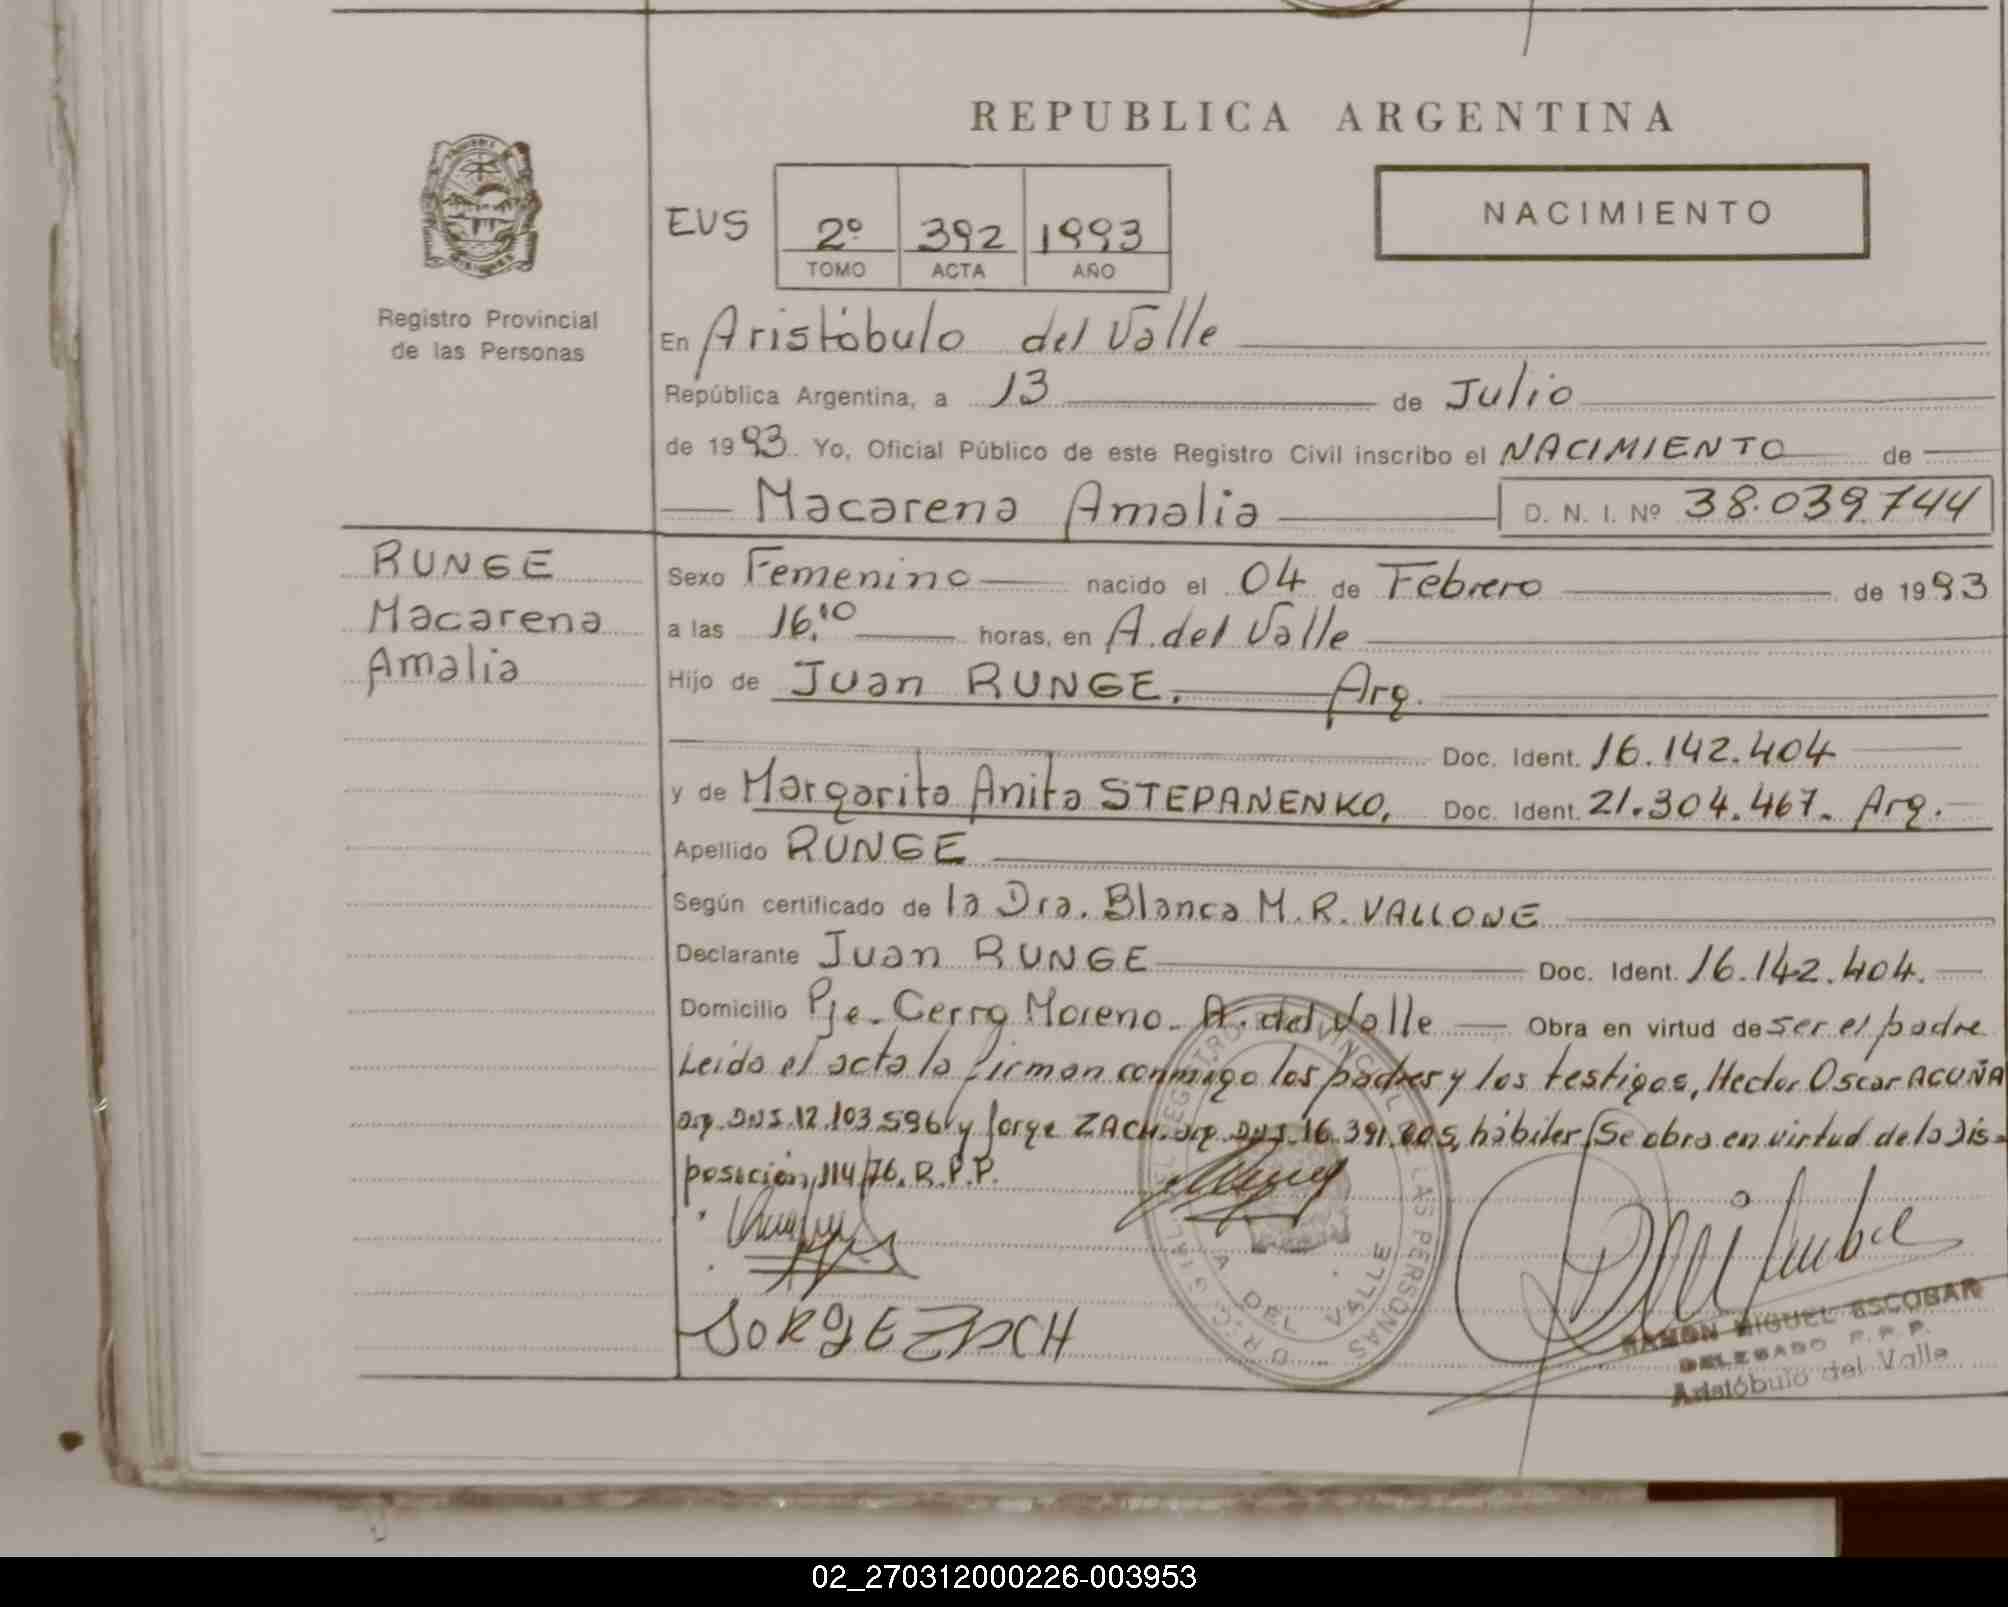 REPUBLICA ARGENTINA
NACIMIENTO
EVS
2º 392 1993
TOMO ACTA AÑO
Registro Provincial
de las Personas
En Aristóbulo del Valle
República Argentina, a 13 de Julio
de 1993. Yo, Oficial Público de este Registro Civil inscribo el NACIMIENTO de
Macarena Amalia D. N. I. Nº 38.039.744
RUNGE
Macarena
Amalia
Sexo Femenino nacido el 04 de Febrero de 1993
a las 16.10 horas, en A. del Valle
Hijo de Juan RUNGE. Arg.
Doc. Ident. 16.142.404
y de Margarita Anita STEPANENKO, Doc. Ident. 21.304.467. Arg.
Apellido RUNGE
Según certificado de la Dra. Blanca M. R. VALLONE
Declarante Juan RUNGE Doc. Ident. 16.142.404.
Domicilio Pje. Cerro Moreno. A. del Valle Obra en virtud de ser el padre
Leida el acta la firman conmigo los padres y los testigos, Hector Oscar ACUÑA
arg. DNI. 12.103.596 y Jorge ZACH. arg. DNI. 16.391.805, hábiles Se obra en virtud de la Dis-
posición, 114/76. R.P.P.
REGISTRO PROVINCIAL DE LAS PERSONAS
A. DEL VALLE
JORGE ZACH
RAMON MIGUEL ESCOBAR
DELEGADO R.P.P.
Aristóbulo del Valle
02_270312000226-003953